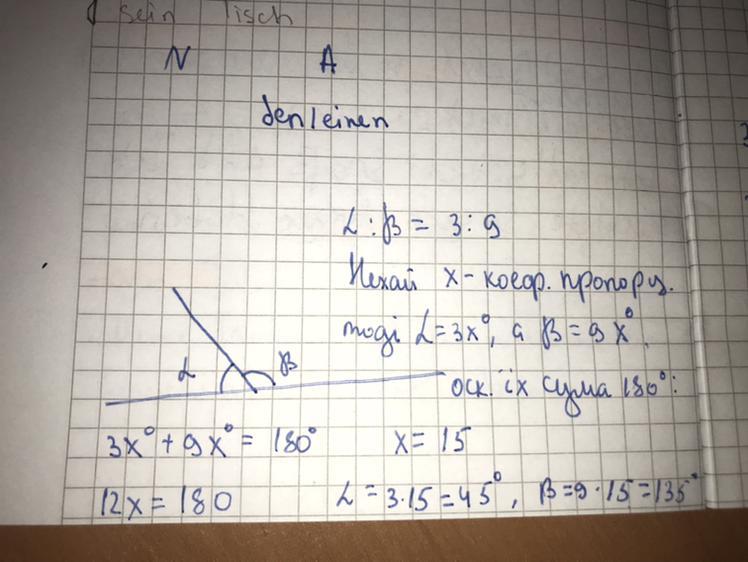 sein Tisch
N A
den/einen
L : β = 3 : 9
Нехай x - коеф. пропорц.
тоді L = 3x°, а β = 9x°,
L β
оск. їх сума 180°:
3x° + 9x° = 180° x = 15
12x = 180 L = 3·15 = 45°, β = 9·15 = 135°